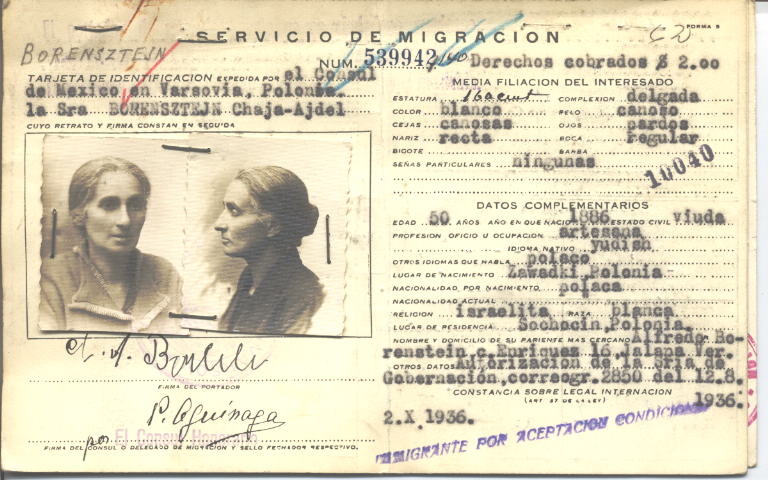 SERVICIO DE MIGRACION
FORMA 5
BORENSZTEJN
NUM. 539942
Derechos cobrados $ 2.00
TARJETA DE IDENTIFICACION EXPEDIDA POR el Consul
de Mexico en Varsovia, Polonia.
la Sra BORENSZTEJN Chaja-Ajdel
CUYO RETRATO Y FIRMA CONSTAN EN SEGUIDA
FIRMA DEL PORTADOR
P. Aguinaga
por El Consul Honorario
FIRMA DEL CONSUL O DELEGADO DE MIGRACION Y SELLO FECHADOR RESPECTIVO.
MEDIA FILIACION DEL INTERESADO
ESTATURA COMPLEXION delgada
COLOR blanco PELO canoso
CEJAS canosas OJOS pardos
NARIZ recta BOCA regular
BIGOTE BARBA
SEÑAS PARTICULARES ningunas
10040
DATOS COMPLEMENTARIOS
EDAD 50 AÑOS AÑO EN QUE NACIO 1886 ESTADO CIVIL viuda
PROFESION OFICIO U OCUPACION artesana
IDIOMA NATIVO yudish
OTROS IDIOMAS QUE HABLA polaco
LUGAR DE NACIMIENTO Zawadki, Polonia
NACIONALIDAD POR NACIMIENTO polaca
NACIONALIDAD ACTUAL
RELIGION israelita RAZA blanca
LUGAR DE RESIDENCIA Sochocin, Polonia.
NOMBRE Y DOMICILIO DE SU PARIENTE MAS CERCANO Alfredo Bo-
renstein c. Enriquez 16, Jalapa Ver.
OTROS DATOS Autorización de la Sria de
Gobernación, correogr. 2850 del 12.8.
1936.
CONSTANCIA SOBRE LEGAL INTERNACION
(ART 57 DE LA LEY)
2.X.1936.
INMIGRANTE POR ACEPTACION CONDICIONAL